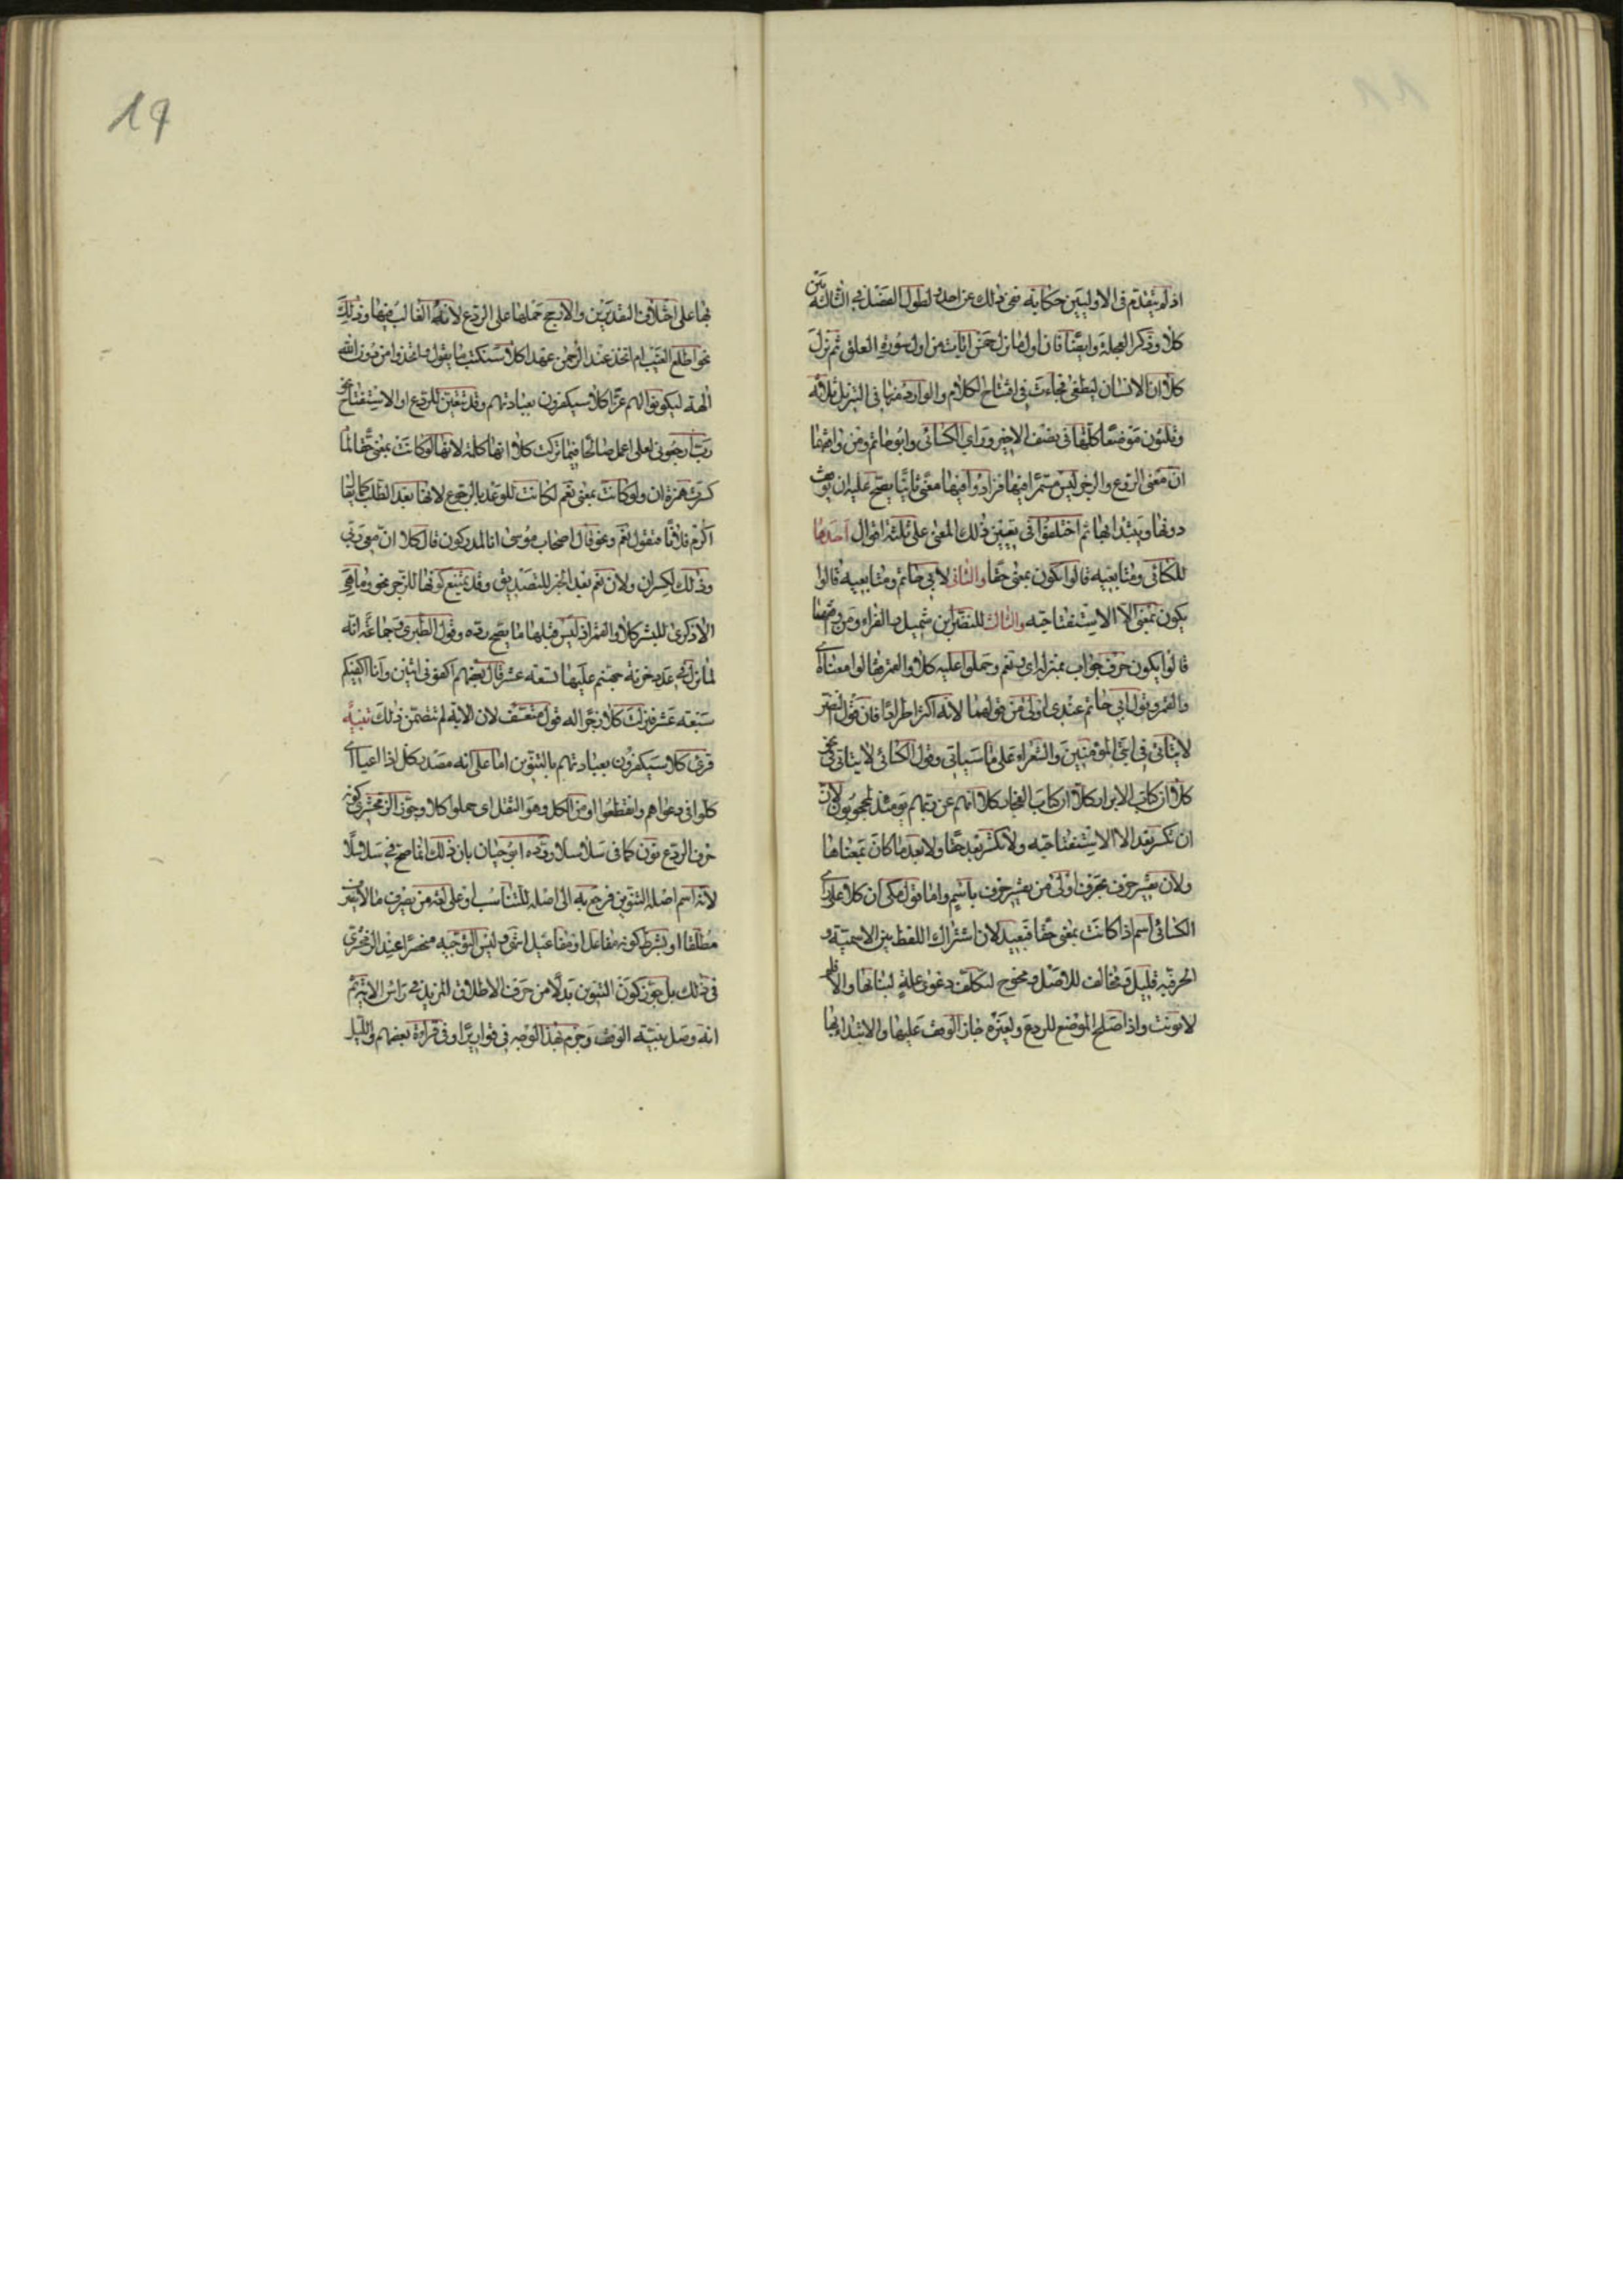 اذ لم يتقدم فى الاوليين حكاية نفى ذلك عن احد ولطول الفصل فى الثالثة بين
كلا وذكر العجلة وايضا فان اول ما نزل خمس ايات من اول سورة العلق ثم نزل
كلا ان الانسان ليطغى فجاءت فى افتتاح الكلام والوارد منها فى التنزيل ثلاثة
وثلثون موضعا كلها فى نصف الاخير وراى الكسائى وابو حاتم ومن وافقهما
ان معنى الردع والزجر ليس مستمرا فيها فزادوا فيها معنى ثانيا يصح عليه ان يوقف
دونها ويبتدا بها ثم اختلفوا فى تعيين ذلك المعنى على ثلثة اقوال احدها
للكسائى ومتابعيه قالوا يكون بمعنى حقا والثانى لابى حاتم ومتابعيه قالوا
يكون بمعنى الا الاستفتاحية والثالث للنضر ابن شميل والفراء ومن وافقهما
قالوا يكون حرف جواب بمنزلة اى ونعم وحملوا عليه كلا والقمر فقالوا معناه اى
والقمر وقول ابى حاتم عندى اولى من قولهما لانه اكثر اطرادا فان قول النضر
لا يتاتى فى ايتى المؤمنين والشعراء على ما سياتى وقول الكسائى لا يتاتى فى نحو
كلا ان كتاب الابرار كلا ان كتاب الفجار كلا انهم عن ربهم يومئذ لمحجوبون لان
ان تكسر بعد الا الاستفتاحية ولا تكسر بعد حقا ولا بعد ما كان بمعناها
ولان تفسير حرف بحرف اولى من تفسير حرف باسم واما قول مكى ان كلا على راى
الكسائى اسم اذا كانت بمعنى حقا فبعيد لان اشتراك اللفظ بين الاسمية و
الحرفية قليل ومخالف للاصل ومحوج لتكلف دعوى علة لبنائها والا فلم
لا نونت واذا صلح الموضع للردع ولغيره جاز الوقف عليها والابتداء بها
بها على اختلاف التقديرين والارجح حملها على الردع لانه الغالب فيها وذلك
نحو اطلع الغيب ام اتخذ عند الرحمن عهدا كلا سنكتب ما يقول واتخذوا من دون الله
الهة ليكونوا لهم عزا كلا سيكفرون بعبادتهم وقد تتعين للردع او الاستفتاح نحو
رب ارجعونى لعلى اعمل صالحا فيما تركت كلا انها كلمة لانها لو كانت بمعنى حقا لما
كسرت همزة ان ولو كانت بمعنى نعم لكانت للوعد بالرجوع لانها بعد الطلب كما يقا
اكرم فلانا فتقول نعم ونحو قال اصحاب موسى انا لمدركون قال كلا ان معى ربى
وذلك لكسر ان ولان نعم بعد الخبر للتصديق وقد يمتنع كونها للزجر نحو وما هى
الا ذكرى للبشر كلا والقمر اذ ليس قبلها ما يصح رده وقول الطبرى وجماعة انه
لما نزل فى عدد خزنة جهنم عليها تسعة عشر قال بعضهم اكفونى اثنين وانا اكفيكم
سبعة عشر فنزلت كلا زجرا له قول متعسف لان الاية لم تتضمن ذلك تنبيه
قرئ كلا سيكفرون بعبادتهم بالتنوين اما على انه مصدر كل اذا اعيا اى
كلوا فى دعواهم وانقطعوا او من الكل وهو الثقل اى حملوا كلا وجوز الزمخشرى كونه
حرف الردع نون كما فى سلاسلا ورده ابو حيان بان ذلك انما صح فى سلاسلا
لانه اسم اصله التنوين فرجع به الى اصله للتناسب او على لغة من يصرف ما لا ينصرف
مطلقا او بشرط كونه مفاعل او مفاعيل انتهى وليس التوجيه منحصرا عند الزمخشرى
فى ذلك بل جوز كون التنوين بدلا من حرف الاطلاق المزيد فى راس الاية ثم
انه وصل بنية الوقف وجزم بهذا الوجه فى قواريرا وفى قراءة بعضهم والليل